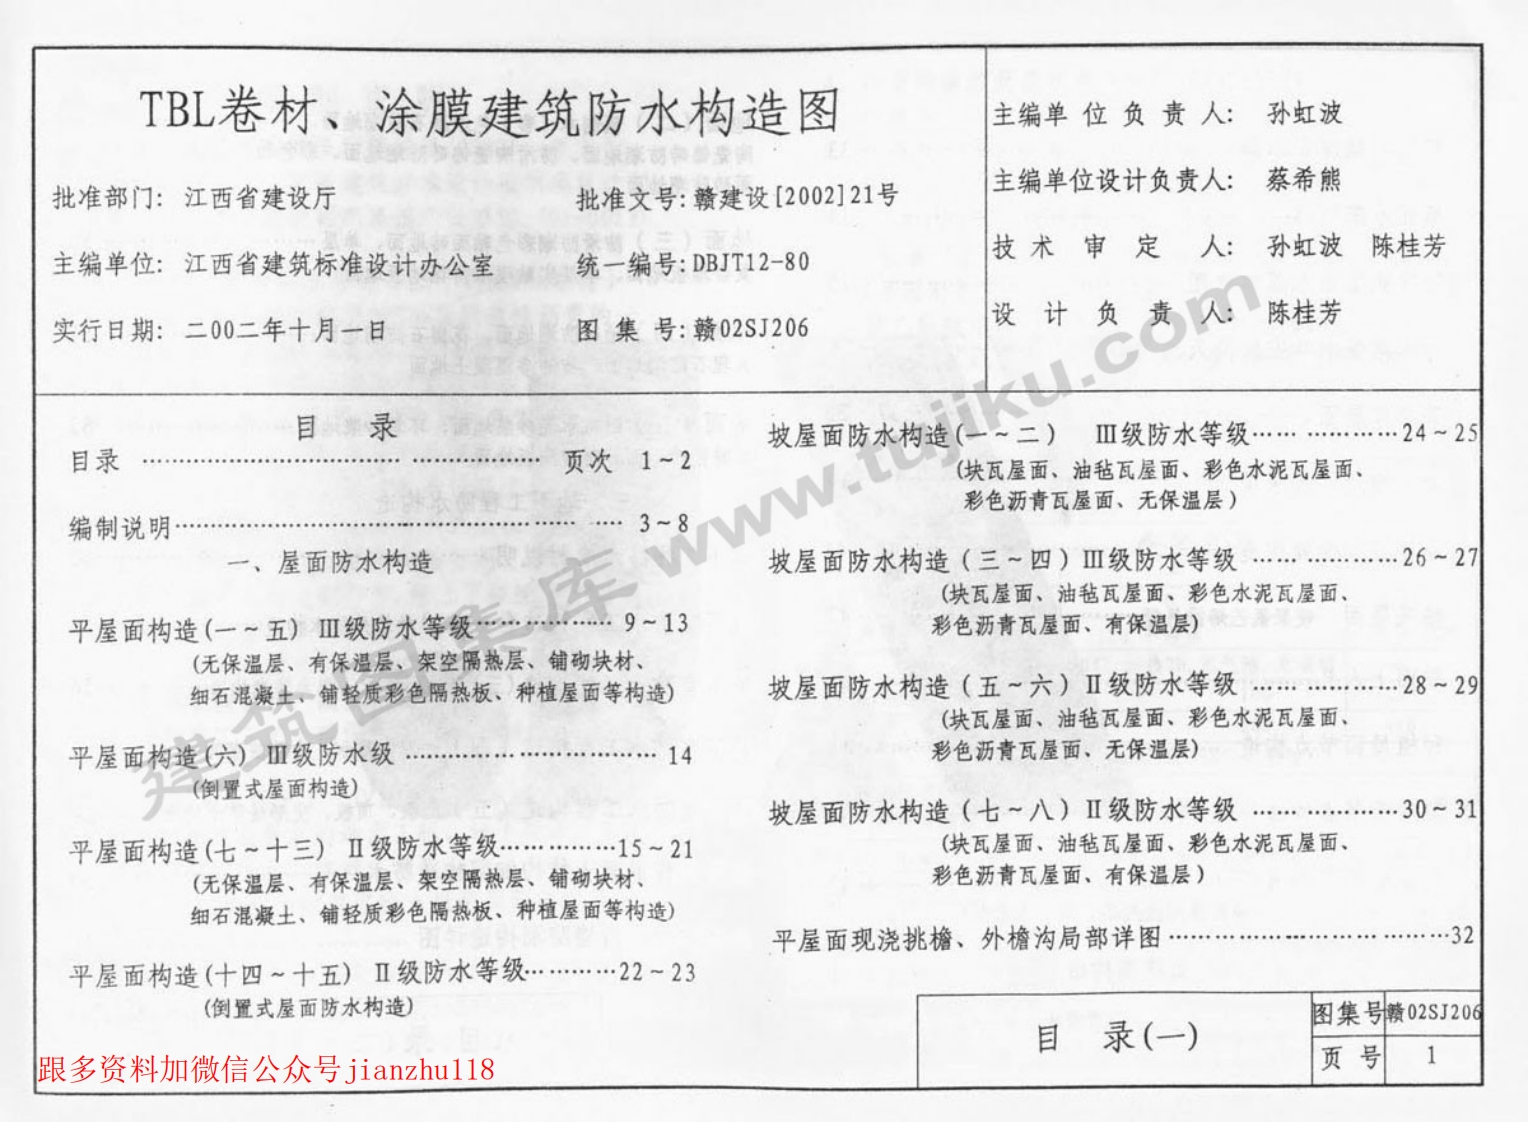 TBL卷材、涂膜建筑防水构造图
批准部门: 江西省建设厅 批准文号: 赣建设[2002]21号
主编单位: 江西省建筑标准设计办公室 统一编号: DBJT12-80
实行日期: 二00二年十月一日 图 集 号: 赣02SJ206
主编单 位 负 责 人: 孙虹波
主编单位设计负责人: 蔡希熊
技 术 审 定 人: 孙虹波 陈桂芳
设 计 负 责 人: 陈桂芳
目 录
目录 …………………………………… 页次 1~2
编制说明…………………………………… 3~8
一、屋面防水构造
平屋面构造(一~五) Ⅲ级防水等级……………… 9~13
(无保温层、有保温层、架空隔热层、铺砌块材、
细石混凝土、铺轻质彩色隔热板、种植屋面等构造)
平屋面构造(六) Ⅲ级防水级 ……………………… 14
(倒置式屋面构造)
平屋面构造(七~十三) Ⅱ级防水等级……………15~21
(无保温层、有保温层、架空隔热层、铺砌块材、
细石混凝土、铺轻质彩色隔热板、种植屋面等构造)
平屋面构造(十四~十五) Ⅱ级防水等级…………22~23
(倒置式屋面防水构造)
坡屋面防水构造(一~二) Ⅲ级防水等级………………24~25
(块瓦屋面、油毡瓦屋面、彩色水泥瓦屋面、
彩色沥青瓦屋面、无保温层)
坡屋面防水构造(三~四)Ⅲ级防水等级 ………………26~27
(块瓦屋面、油毡瓦屋面、彩色水泥瓦屋面、
彩色沥青瓦屋面、有保温层)
坡屋面防水构造(五~六)Ⅱ级防水等级 ………………28~29
(块瓦屋面、油毡瓦屋面、彩色水泥瓦屋面、
彩色沥青瓦屋面、无保温层)
坡屋面防水构造(七~八)Ⅱ级防水等级 ………………30~31
(块瓦屋面、油毡瓦屋面、彩色水泥瓦屋面、
彩色沥青瓦屋面、有保温层)
平屋面现浇挑檐、外檐沟局部详图…………………………32
目 录(一)
图集号 赣02SJ206
页 号 1
建筑图集库 www.tujiku.com
跟多资料加微信公众号jianzhu118